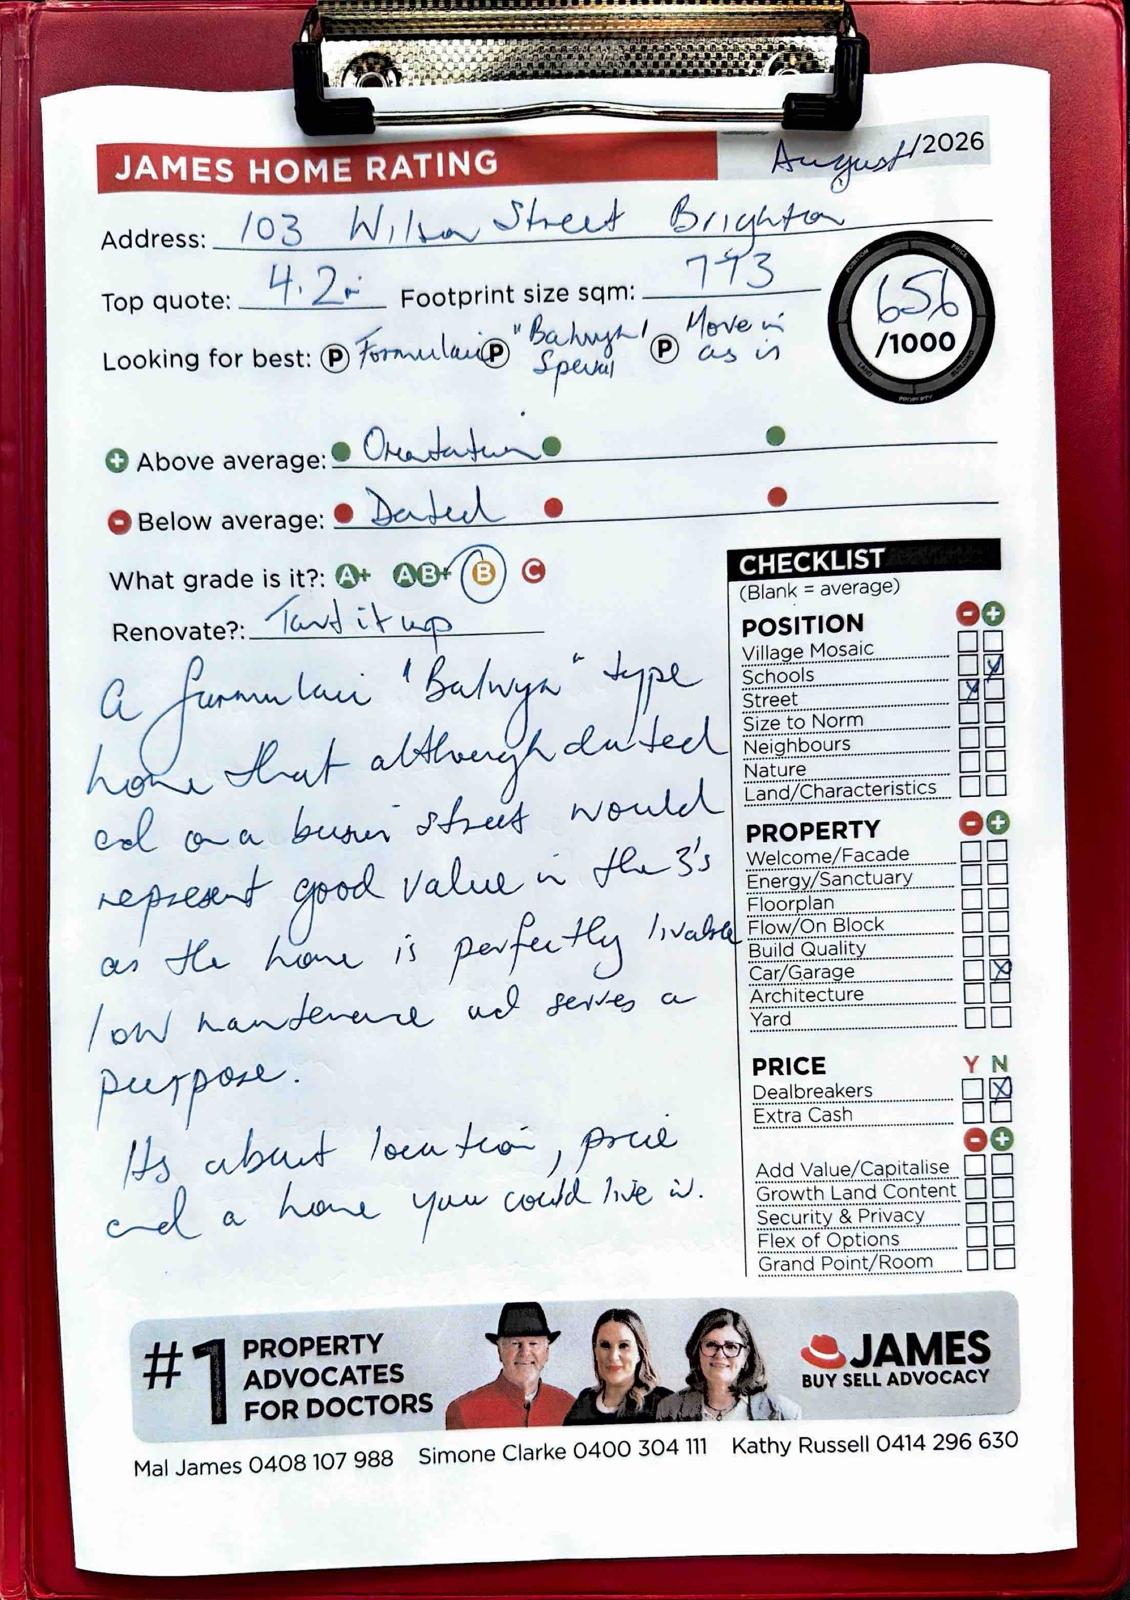 JAMES HOME RATING
August/2026
Address: 103 Wilson Street Brighton
Top quote: 4.2m Footprint size sqm: 773
656
/1000
Looking for best: P Formulaic P "Balwyn" Special P Move in as is
+ Above average: Orientation
- Below average: Dated
What grade is it?: A+ AB+ B C
Renovate?: Tart it up
A formulaic "Balwyn" type
home that although dated
and on a busier street would
represent good value in the 3's
as the home is perfectly livable
low maintenance and serves a
purpose.
Its about location, price
and a home you could live in.
CHECKLIST
(Blank = average)
POSITION - +
Village Mosaic
Schools
Street
Size to Norm
Neighbours
Nature
Land/Characteristics
PROPERTY - +
Welcome/Facade
Energy/Sanctuary
Floorplan
Flow/On Block
Build Quality
Car/Garage
Architecture
Yard
PRICE Y N
Dealbreakers
Extra Cash
- +
Add Value/Capitalise
Growth Land Content
Security & Privacy
Flex of Options
Grand Point/Room
#1 PROPERTY
ADVOCATES
FOR DOCTORS
JAMES
BUY SELL ADVOCACY
Mal James 0408 107 988 Simone Clarke 0400 304 111 Kathy Russell 0414 296 630